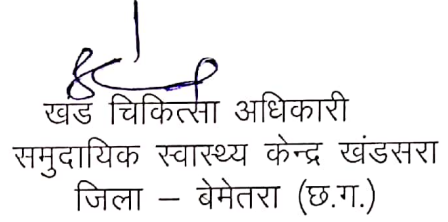 खंड चिकित्सा अधिकारी
समुदायिक स्वास्थ्य केन्द्र खंडसरा
जिला – बेमेतरा (छ.ग.)